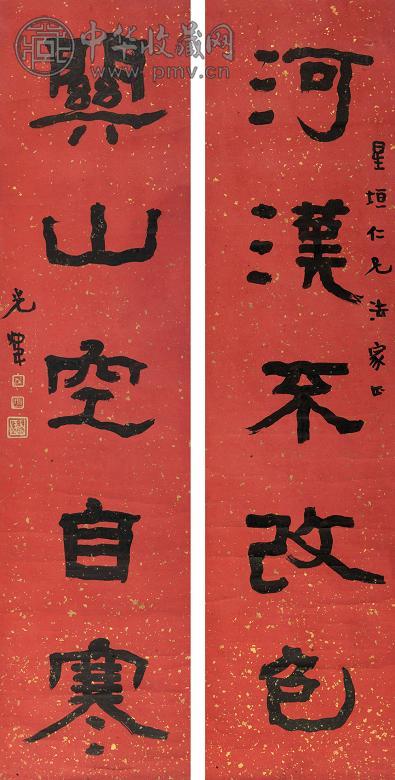 河漢不改色
星垣仁兄法家正
關山空自寒
光煒
中华收藏网
www.pmv.cn